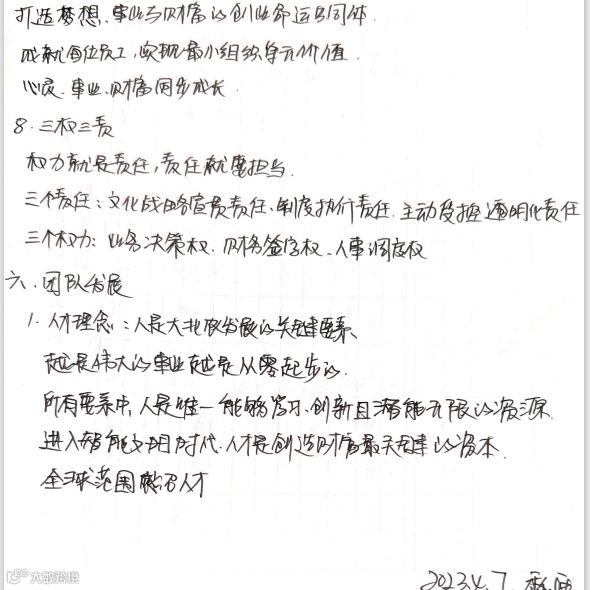 打造梦想、事业与财富的创业命运共同体.
成就每位员工,实现最小组织单元价值.
心灵、事业、财富同步成长.
8.三权三责
权力就是责任,责任就要担当.
三个责任:文化战略宣贯责任、制度执行责任、主动受控透明化责任
三个权力:业务决策权、财务签字权、人事调度权
六.团队发展
1.人才理念:人是大北农发展的关键要素、
越是伟大的事业越是从零起步的.
所有要素中,人是唯一能够学习、创新且潜能无限的资源.
进入智能文明时代、人才是创造财富最关键的资本.
全球范围招人才
2023.4.7
大数跨境